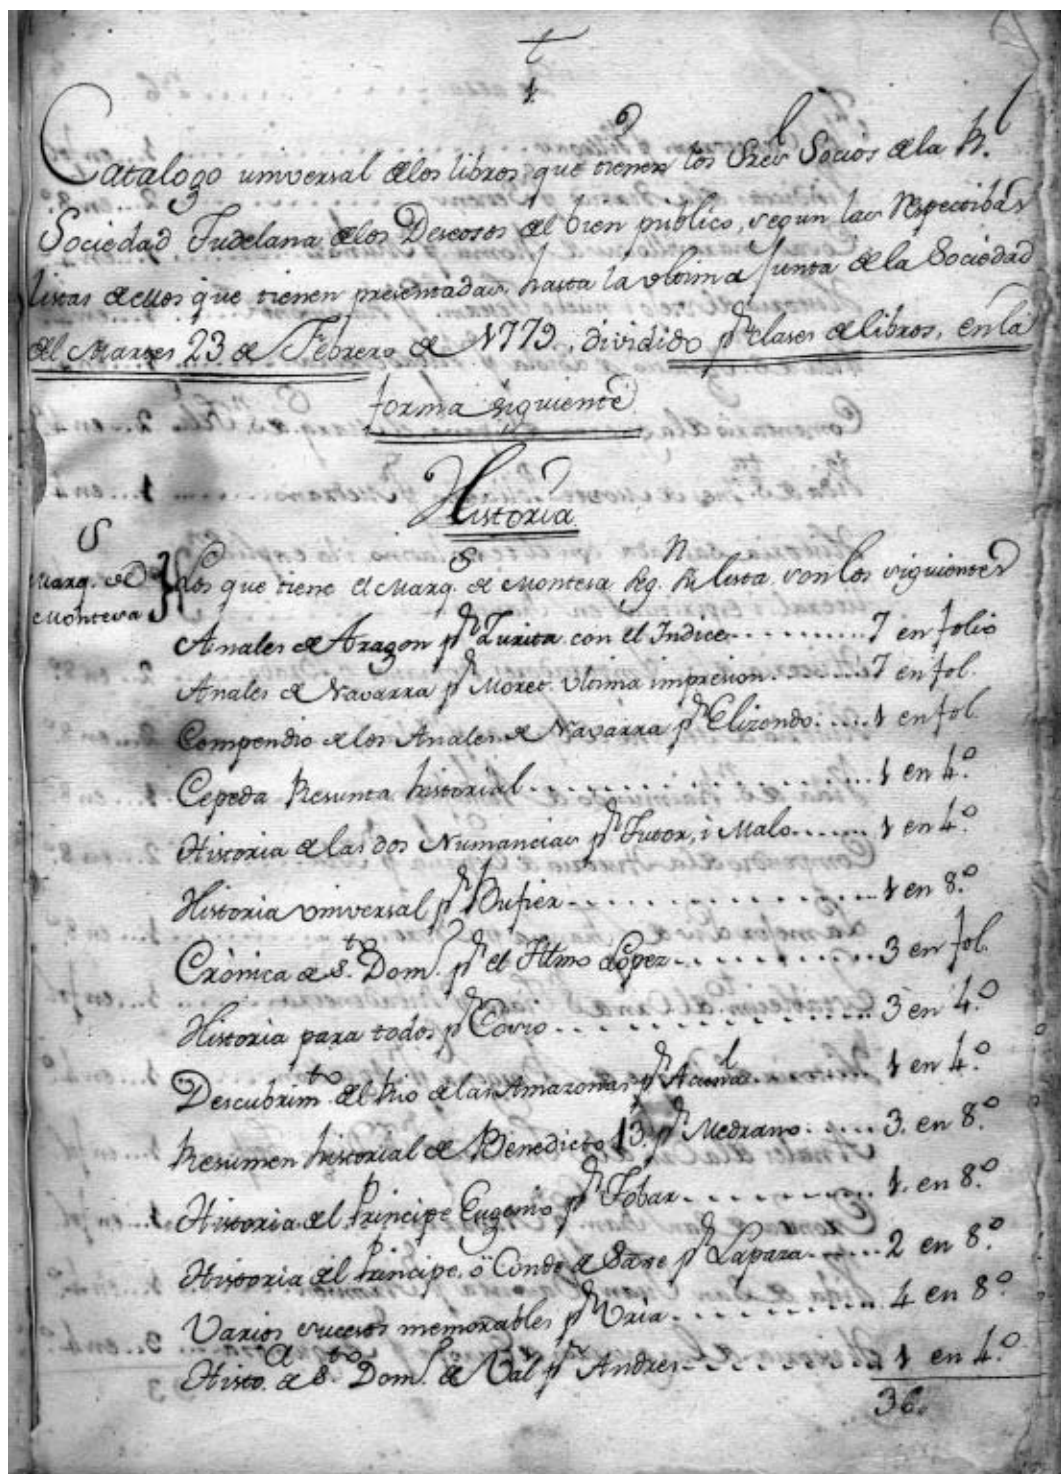 t
1
Catalogo universal de los libros que tienen los Sres Socios de la Rl.
Sociedad Tudelana de los Deseosos del bien publico, segun las respectibas
listas de ellos que tienen presentadas hasta la vltima Junta de la Sociedad
del Martes 23 de Febrero de 1779, dividido pr. clases de libros, en la
forma siguiente
Historia
Marqs. de
Montesa
Los que tiene el Marqs. de Montesa segn. su lista son los siguientes
Anales de Aragon pr. Zurita con el Indice ......... 7 en folio
Anales de Navarra pr. Moret. vltima impresion ...... 7 en fol.
Compendio de los Anales de Navarra pr. Elizondo ..... 1 en fol.
Cepeda Resumta historial ................. 1 en 4.º
Historia de las dos Numancias pr. Tutor, i Malo ...... 1 en 4.º
Historia vniversal pr. Bufier ............... 1 en 8.º
Crònica de Sto. Domo. pr. el Illmo Lopez ......... 3 en fol.
Historia para todos pr. Covio ............... 3 en 4.º
Descubrimto. del Rio de las Amazonas pr. Acuña ... 1 en 4.º
Resumen historial de Benedicto 13. pr. Medrano ..... 3. en 8.º
Historia del Principe Eugenio pr. Tobar ......... 1. en 8.º
Historia del Principe, ò Conde de Saxe pr. Lapaza ...... 2 en 8.º
Varios sucesos memorables pr. Vria .......... 4 en 8.º
Histoa. de Sto. Domo. de Val pr. Andres .......... 1 en 4.º
36.